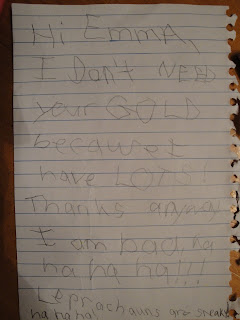 Hi Emma,
I Don't NEED
your GOLD
because I
have LOTS!
Thanks anyway
I am bad. ha
ha ha ha!!!
Leprachauns are sneaky
ha ha ha!